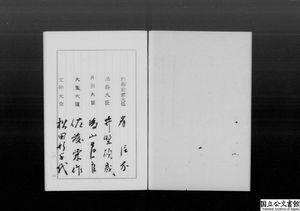 内閣総理大臣 岸信介
法務大臣 井野碩哉
大蔵大臣 佐藤栄作
文部大臣 松田竹千代
国立公文書館
National Archives of Japan